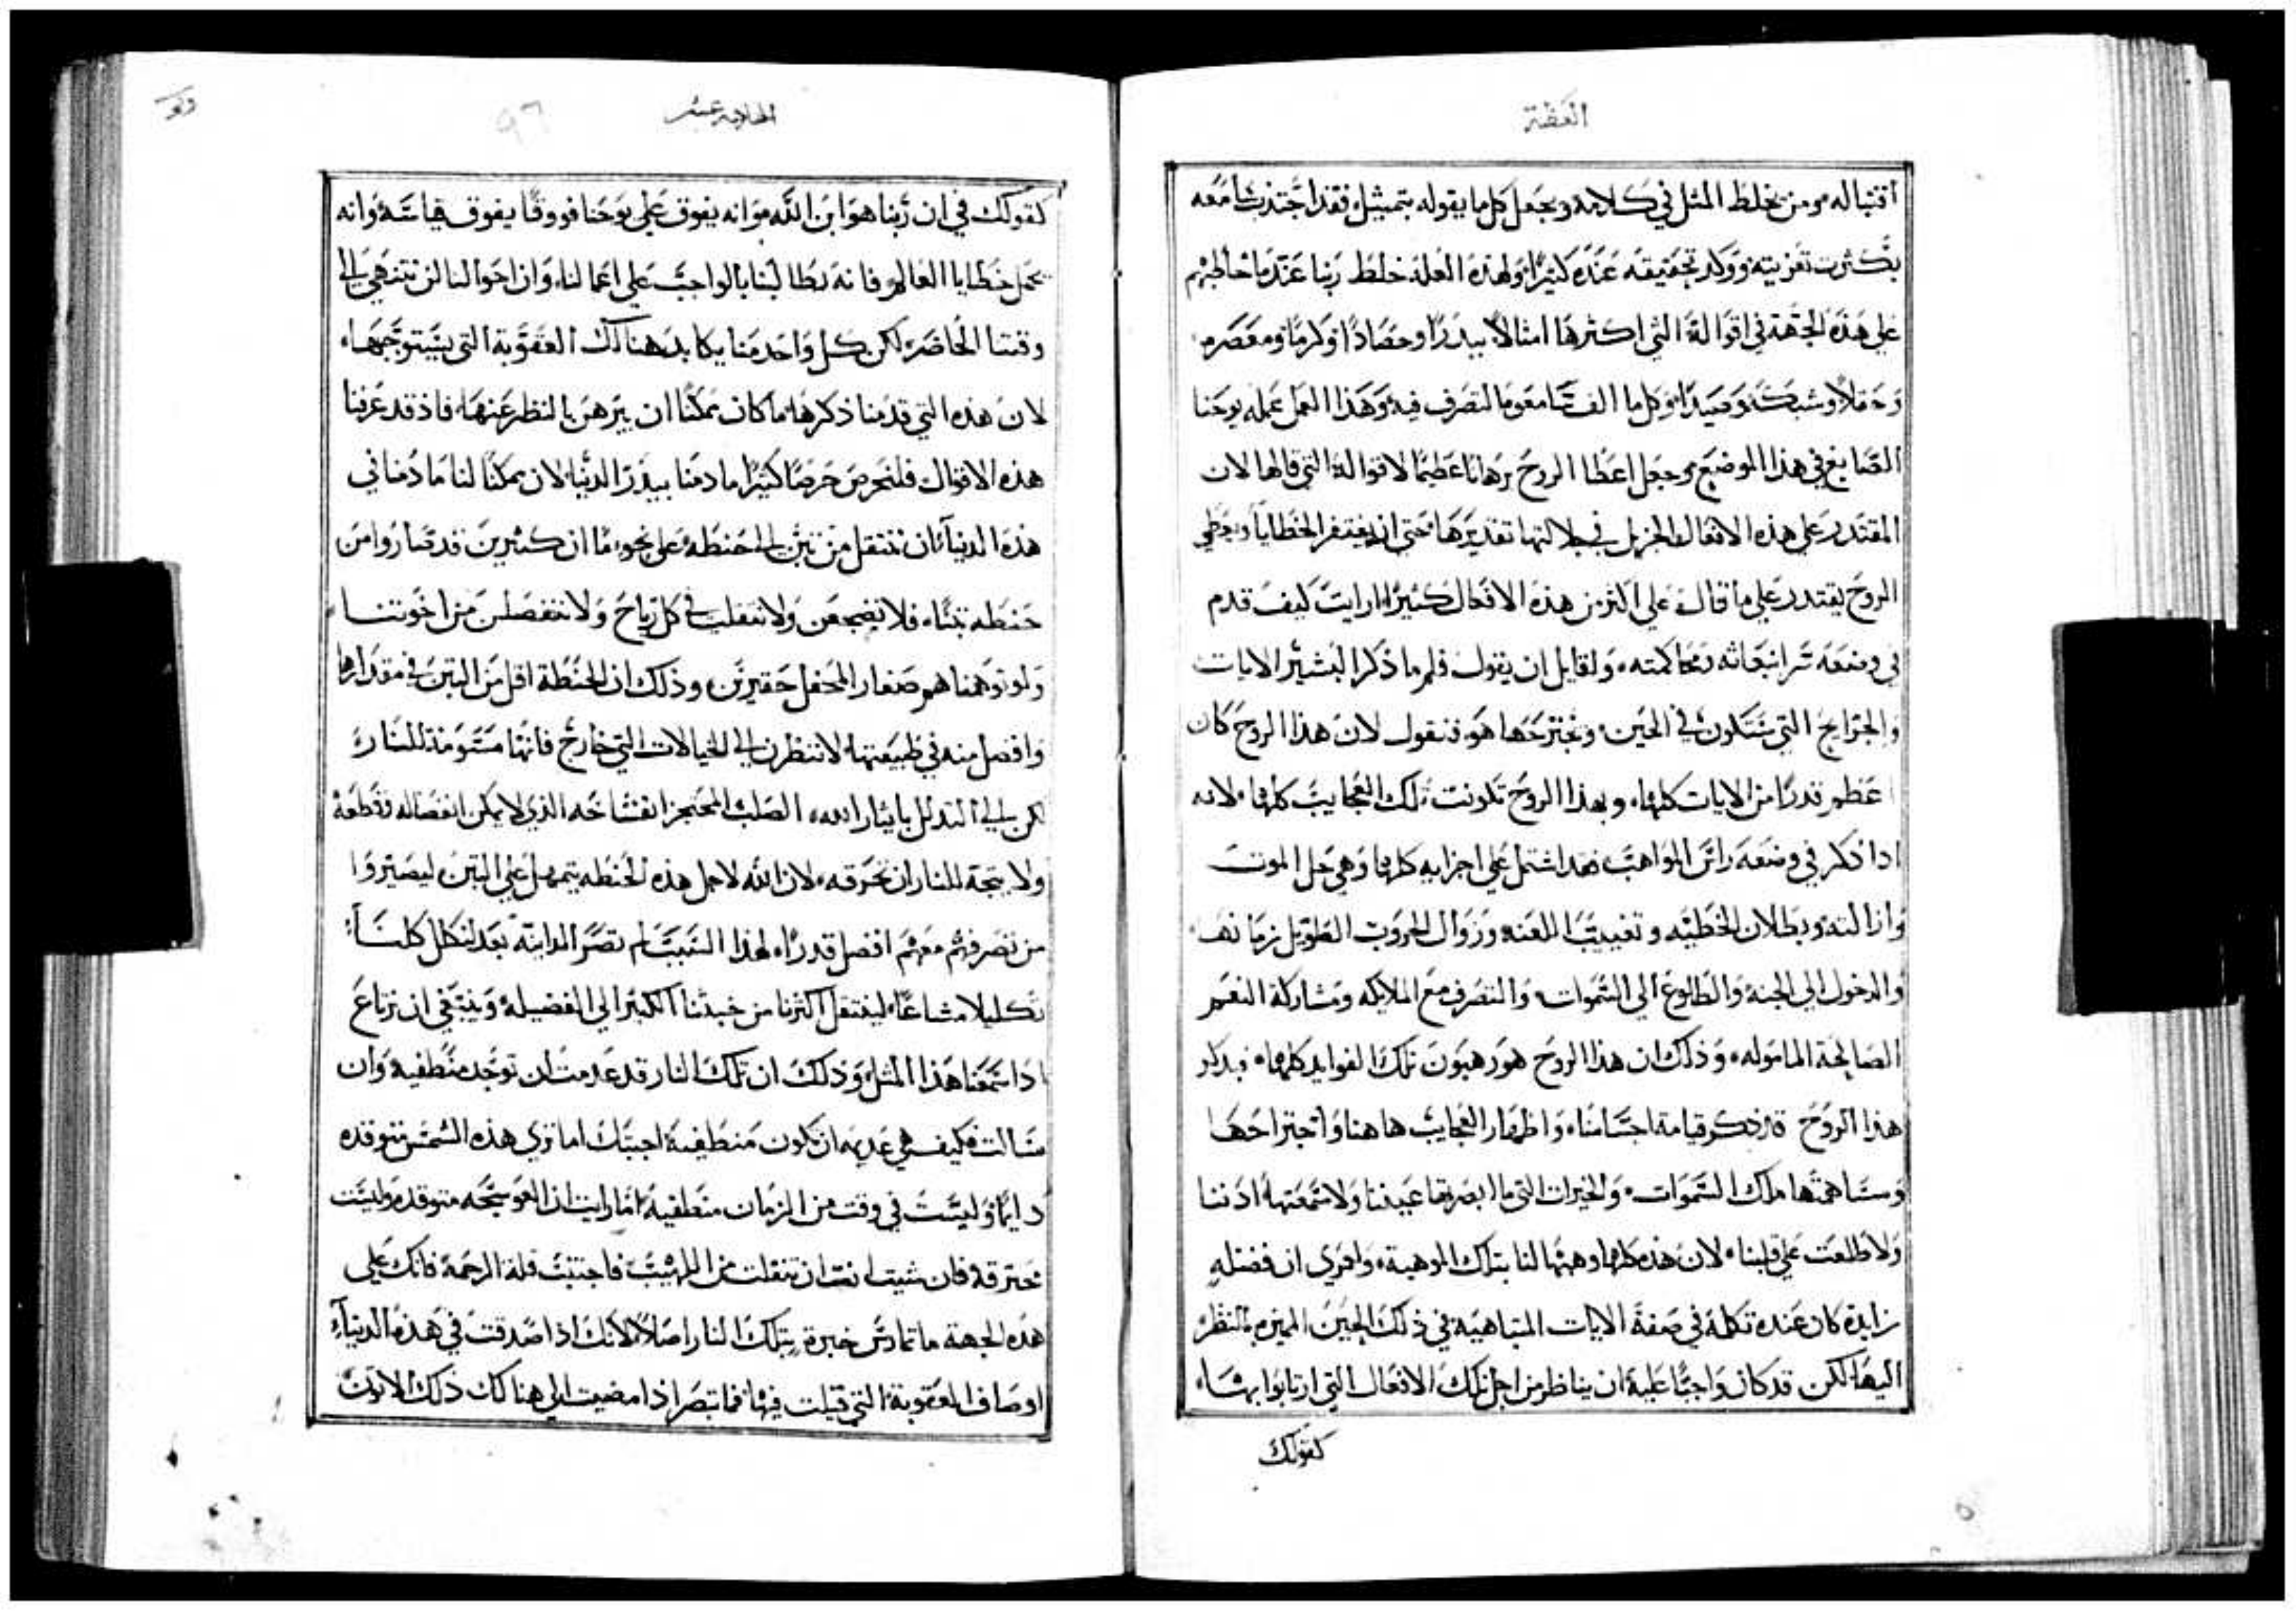 العظة
اقتباله ومن يخلط المثل في كلامه ويجعل كل ما يقوله بتمثيل فقد اجتذب سامعه
بكثرت تعزيته ووكد تحقيقه عنده كثيرًا ولهذه العلة خلط ربنا عندما خاطبهم
علي هذه الجهة في اقواله التي اكثرها امثالاً بيدرًا وحصادًا وكرمًا ومعصره
وحقلاً وشبكه وصيدًا وكل ما الف سامعوه التصرف فيه وهذا العمل عمله يوحنا
الصابغ في هذا الموضع وجعل اعطا الروح برهانًا عظيمًا لاقواله التي قالها لان
المقتدر علي هذه الافعال الجزيل في جلالتها تقديرها حتي ان يغتفر الخطايا ويعطي
الروح يقتدر علي ما قال علي اكثر من هذه الافعال كثيرًا ارايت كيف قدم
في وضعه سر انبعاثه ومحاكمته ولقايل ان يقول فلم ما ذكر البشير الايات
والجرايح التي ستكون في الحين ويجترحها هو فنقول لان هذا الروح كان
اعظم قدرًا من الايات كلها وبهذا الروح تكونت تلك العجايب كلها لانه
اذا ذكر في وضعه راس المواهب فقد اشتمل علي اجزايه كلها وهي حل الموت
وازالته وبطلان الخطيه وتغييب اللعنه وزوال الحروب الطويل زمانها
والدخول الي الجنه والطلوع الي السموات والتصرف مع الملايكه ومشاركة النعم
الصالحة الماموله وذلك ان هذا الروح هو رهبون تلك الفوايد كلها فبذكر
هذا الروح قد ذكر قيامة اجسامنا واظهار العجايب هاهنا واجتراحها
وستاهمها ملك السموات والخيرات التي ما ابصرتها عيننا ولا سمعتها اذننا
ولا طلعت علي قلبنا لان هذه كلها وهبها لنا بتلك الموهبة ولعمري ان فضله
زايدة كان عنده تكلمه في صفة الايات المتناهيه في ذلك الحين المميزه بالنظر
اليها لكن قد كان واجبًا عليه ان يناظر من اجل تلك الافعال التي ارتابوا بها
كقولك
الحاديه عشر
٩٦
كقولك في ان ربنا هو ابن الله وانه يفوق علي يوحنا فووقًا يفوق قياسه وانه
يحمل خطايا العالم فانه يطالبنا بالواجب علي اعمالنا وان احوالنا لن تنتهي الي
وقتنا الحاضر لكن كل واحد منا يكابد هنالك العقوبة التي يستوجبها
لان هذه التي قدمنا ذكرها ما كان ممكنًا ان يبرهن بالنظر عنها فاذ قد عرفنا
هذه الاقوال فلنحرص حرصًا كثيرًا ما دمنا ببيدر الدنيا لان ممكنًا لنا ما دمنا في
هذه الدنيا ان ننتقل من تبن الي حنطه علي نحو ما ان كثيرين قد صاروا من
حنطه تبنًا فلا نضجعن ولا ننقلب في كل رياح ولا ننفصلن من اخوتنا
ولو توهمنا هم صغار المحفل حقيرين وذلك ان الحنطة اقل من التبن في مقدارها
وافضل منه في طبيعتها لا تنظرن الي الخيالات التي خارج فانها مستومنة للنار
لكن الي التذلل بايثار الله الصلب المحتجز انفشاخه الذي لا يمكن انفصاله وقطعه
ولا يتجه للنار ان تحرقه لان الله لاجل هذه الحنطه يتمهل علي التبن ليصيروا
من تصرفهم معهم افضل قدرًا لهذا السبب لم تصر المداينه بعد لنكلل كلنا
تكليلا مشاعًا لينتقل اكثرنا من خبثنا الكثير الي الفضيله وينبغي ان نرتاع
اذا سمعنا هذا المثل وذلك ان تلك النار قد عدمت ان توجد منطفيه وان
سالت فكيف هي عديمه ان تكون منطفية اجبتك اما تري هذه الشمس متوقده
دايمًا وليست في وقت من الزمان منطفيه اما رايت ان العوسجه متوقده وليست
محترقه فان شيت انت ان تنفلت من اللهيب فاجتنب قلة الرحمه فانك علي
هذه الجهة ما تمارس خبرة بتلك النار اصلاً لانك اذا صدقت في هذه الدنيا
اوصاف العقوبة التي قيلت فيها فما تبصر اذا مضيت الي هناك ذلك الاتون